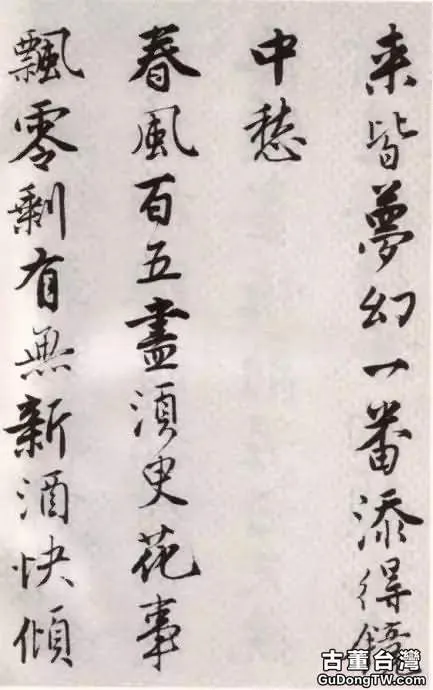 来皆夢幻一番添得鏡
中愁
春風百五盡須臾花事
飄零剩有無新酒快傾
古董台灣
GuDongTW.com